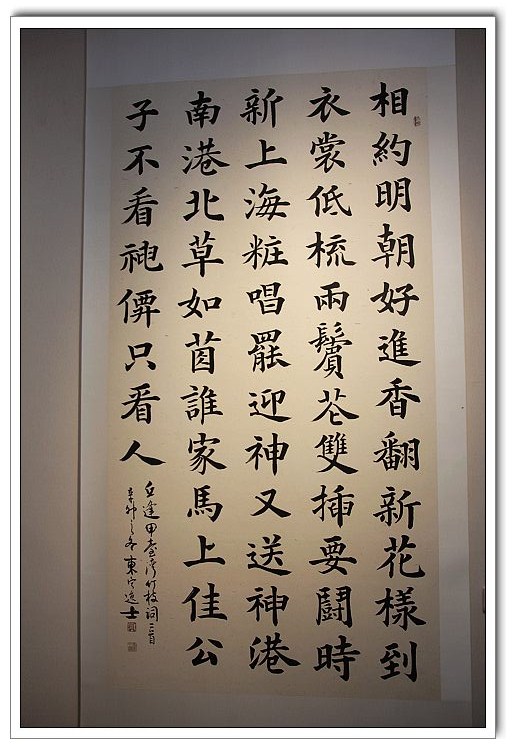 相約明朝好進香翻新花樣到
衣裳低梳兩鬢花雙插要鬪時
新上海粧唱罷迎神又送神港
南港北草如茵誰家馬上佳公
子不看神僊只看人
丘逢甲臺灣竹枝詞二首
辛卯之冬東寧逸士